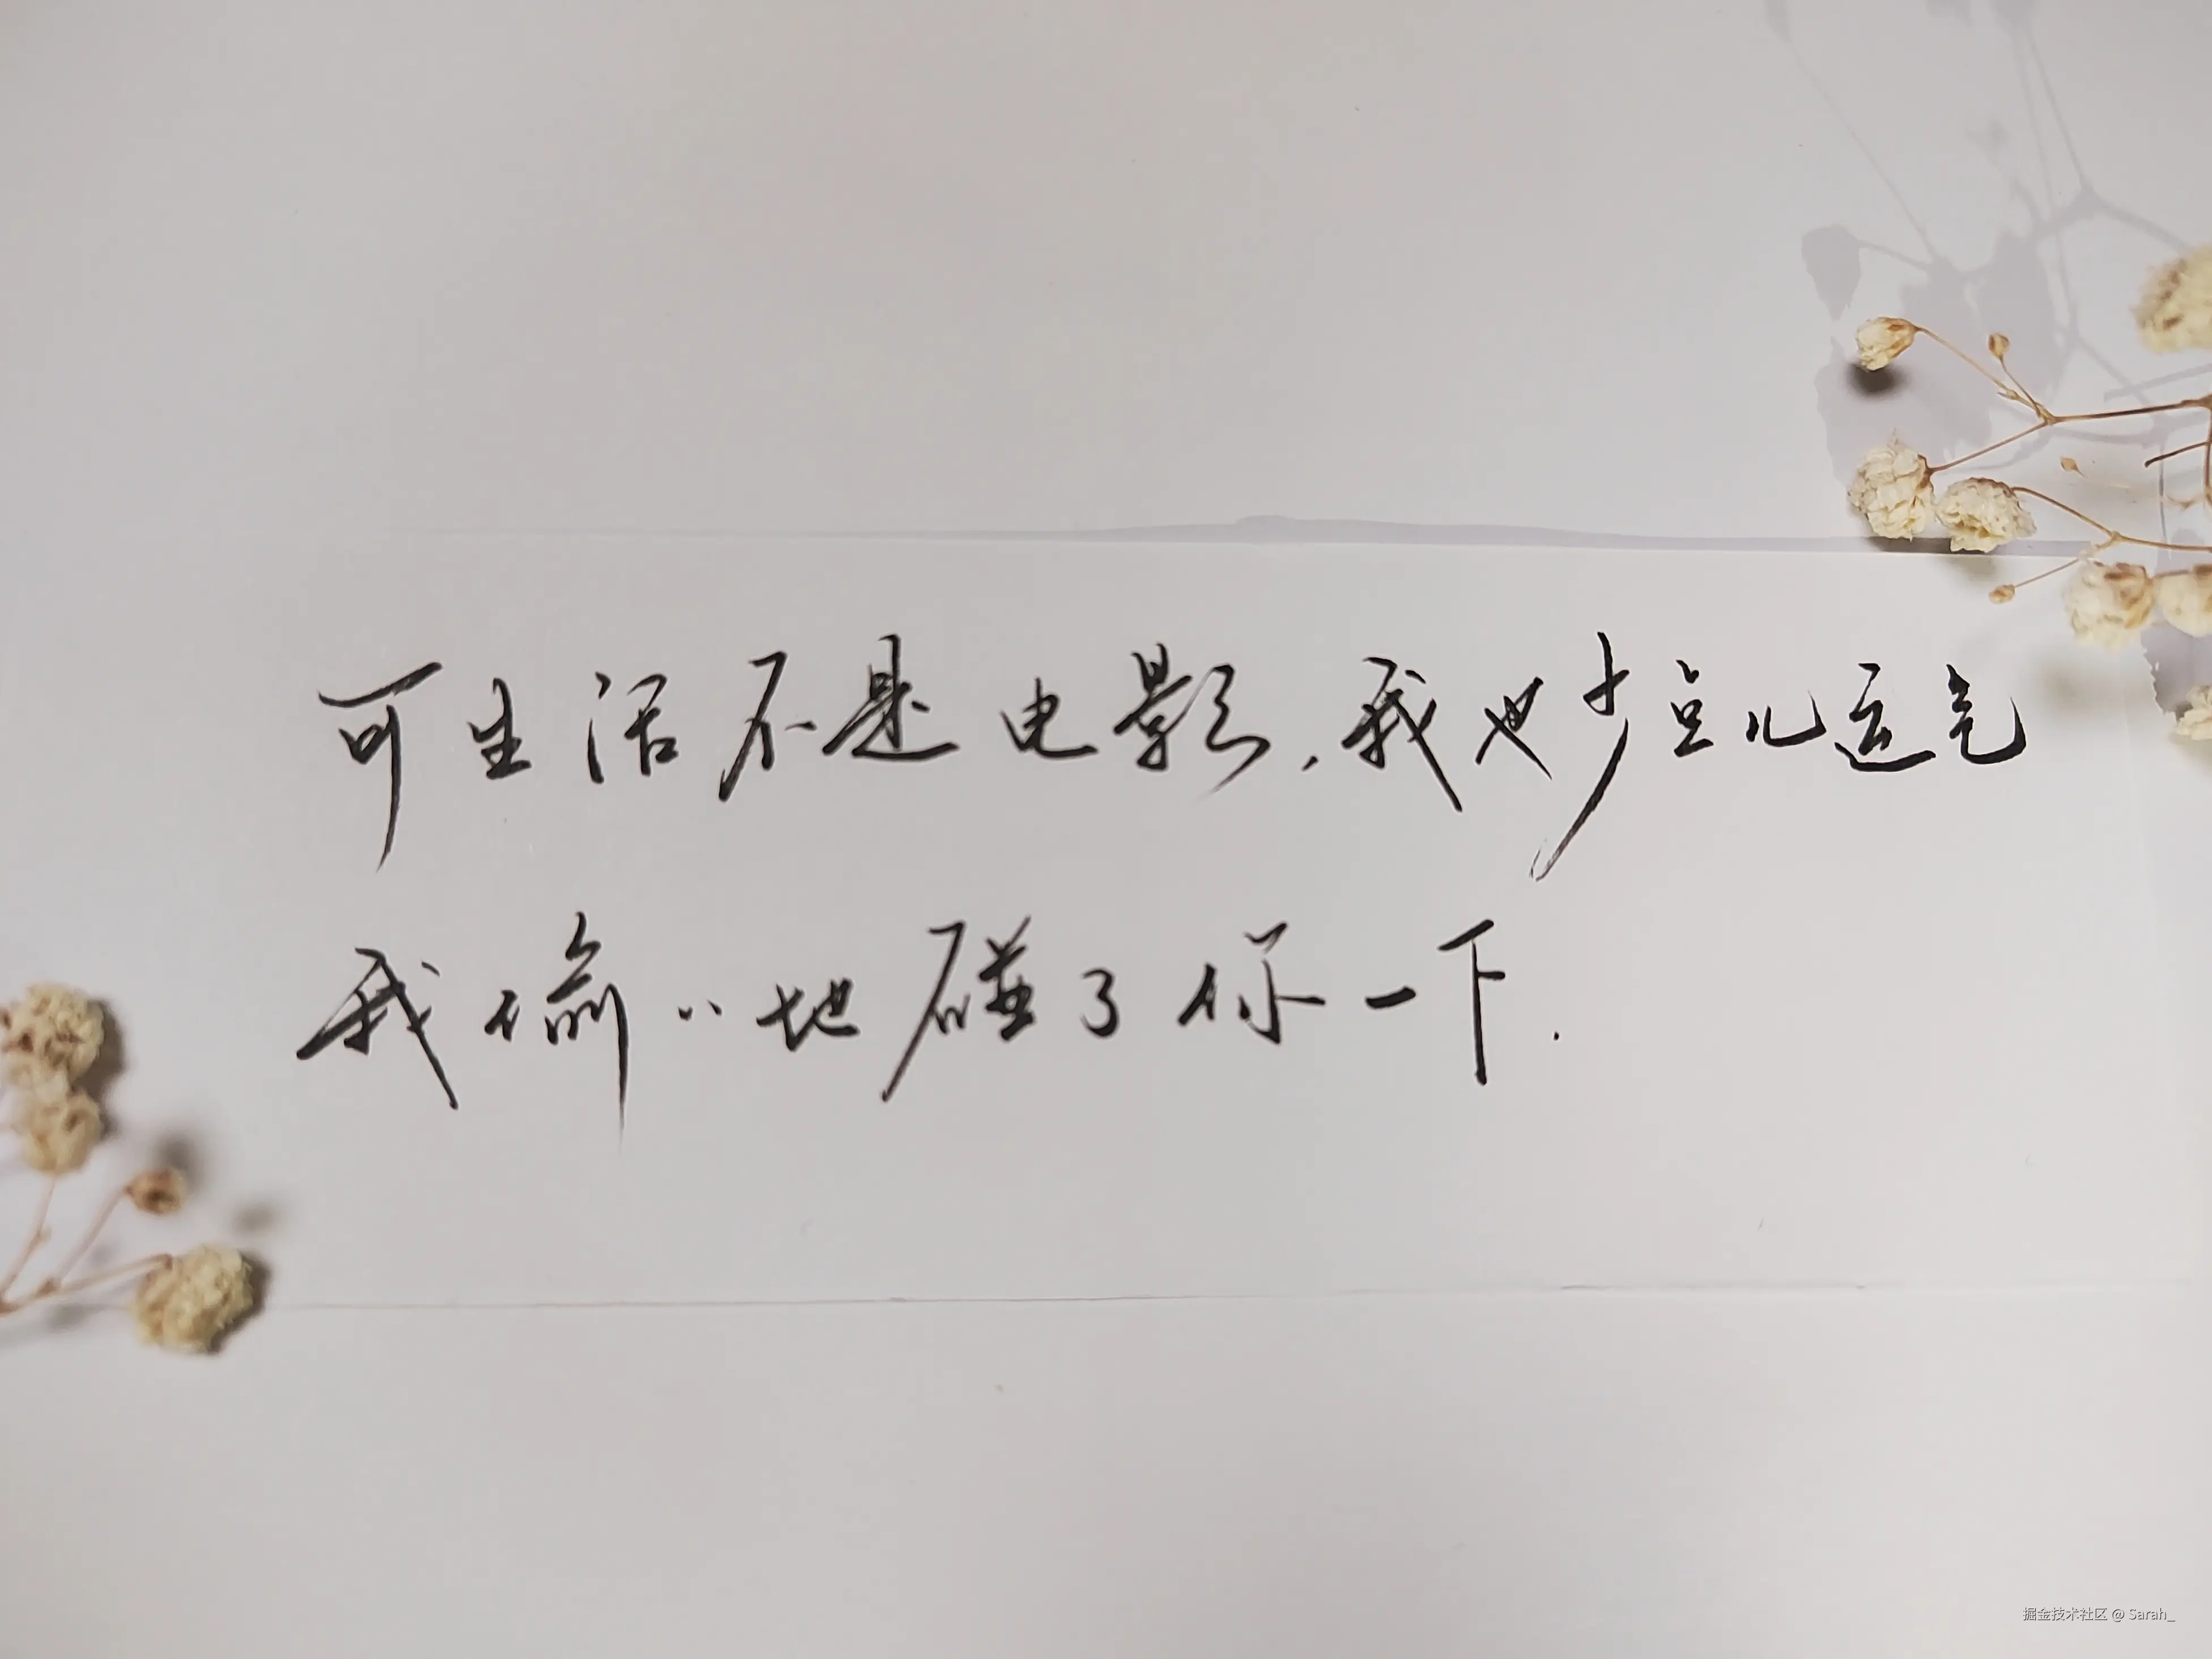 可生活不是电影,我也少点儿运气
我偷〃地碰了你一下.
掘金技术社区 @ Sarah_